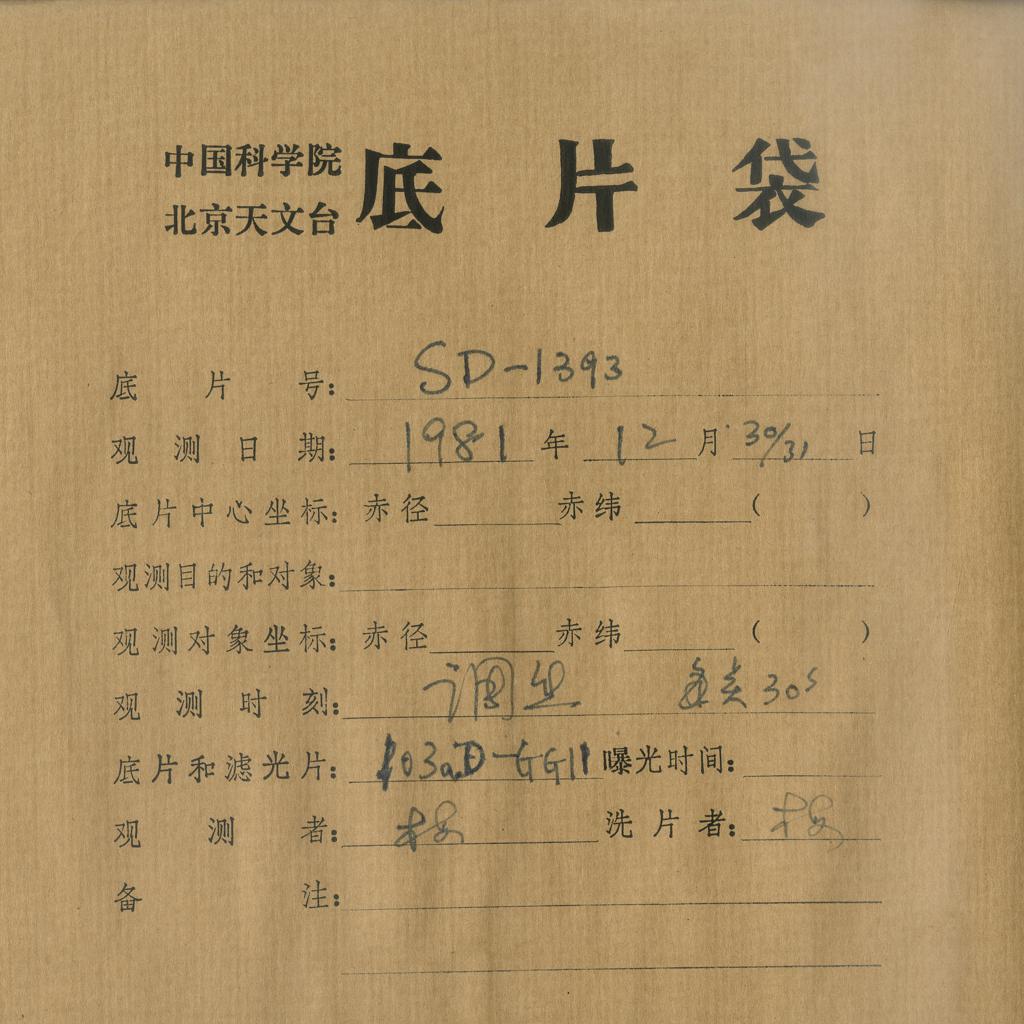 中国科学院
北京天文台
底片袋
底片号: SD-1393
观测日期: 1981年12月30/31日
底片中心坐标: 赤径 赤纬 ( )
观测目的和对象:
观测对象坐标: 赤径 赤纬 ( )
观测时刻: 调 30s
底片和滤光片: 103aD-GG11 曝光时间:
观测者: 梅 洗片者: 梅
备注: